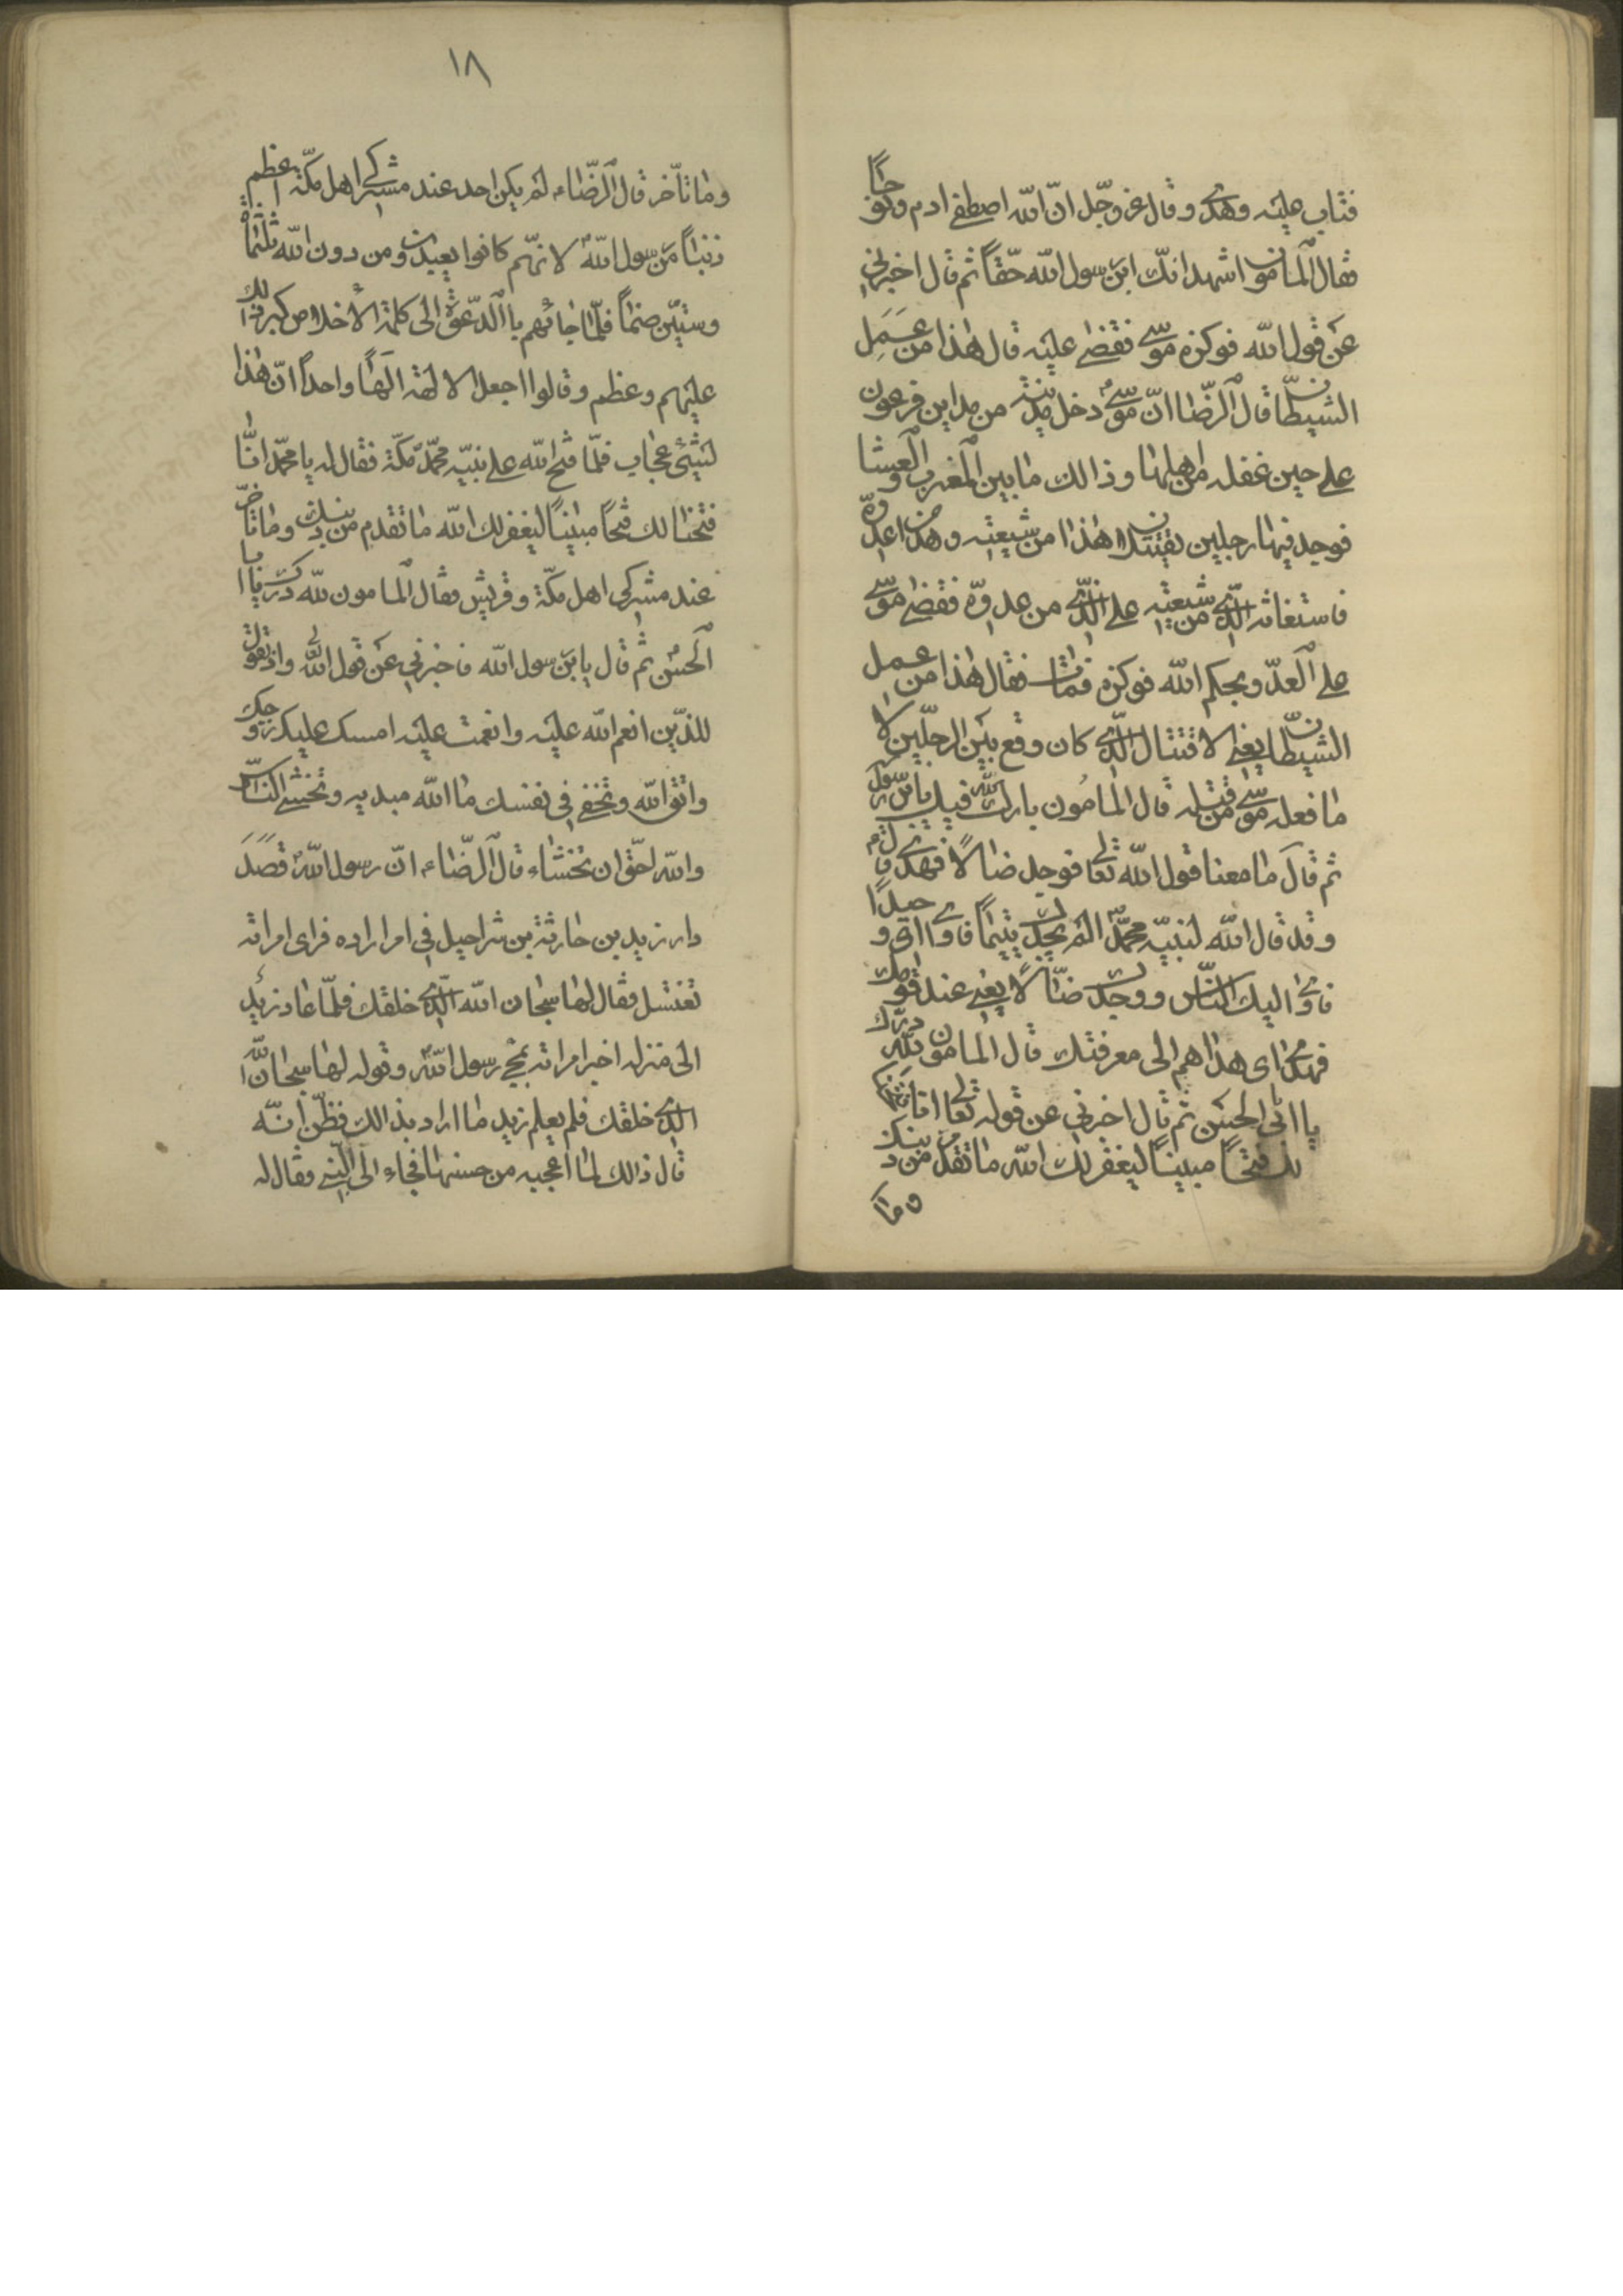 فتاب عليه وهدى وقال عز وجّل انّ الله اصطفى ادم ونوحاً
فقال المامون اشهد انّك ابن رسول الله حقّاً ثم قال اخبرنى
عن قول الله فوكزه موسى فقضى عليه قال هذا من عمل
الشيطان قال الرّضا انّ موسى دخل مدينة من مداين فرعون
على حين غفله من اهلها وذالك ما بين المغرب والعشا
فوجد فيها رجلين يقتتلان هذا من شيعته وهذا من عدوّه
فاستغاثه الّذى من شيعته على الّذى من عدوّه فقضى موسى
على العدّو بحكم الله فوكزه فمات فقال هذا من عمل
الشيطان يعنى لاقتتال الّذى كان وقع بين الرجلين لا
ما فعله موسى من قتله قال المامون بارك الله فيك يابن رسول
ثم قال ما معنا قول الله تعالى فوجد ضالاً فهدى قال
وقد قال الله لنبيّه محمّد الم يجدك يتيماً فاوى اى وحيداً
فاوى اليك النّاس ووجدك ضّالاً يعنى عند قومك
فهدى اى هداهم الى معرفتك قال المامون لله درّك
يا ابى الحسن ثم قال اخبرنى عن قوله تعالى انا فتحنا
لك فتحاً مبيناً ليغفر لك الله ما تقدم من ذنبك
وما
١٨
وما تاّخر قال الرّضاء لم يكن احد عند مشركى اهل مكّة اعظم
ذنباً من رسول الله لانهّم كانوا يعبدون من دون الله ثلثماة
وستيّن صنماً فلمّا جائهم باالدّعوة الى كلمة الأخلاص كبر ذالك
عليهم وعظم وقالوا اجعل الالهة الهاً واحداً انّ هذا
لشئ عجاب فلمّا فتح الله على نبيّه محمّد مكّة فقال له يا محمّد انّا
فتحنا لك فتحاً مبيناً ليغفر لك الله ما تقدم من ذنبك وما تاخّر
عند مشركى اهل مكّة وقريش فقال المامون لله درّك يا ابا
الحسن ثم قال يابن رسول الله فاخبرنى عن قول الله تعالى واذ تقول
للذّين انعم الله عليه وانعمت عليه امسك عليك زوجك
واتق الله وتخفى فى نفسك ما الله مبديه وتخشى النّاس
والله احّق ان تخشاء قال الرّضاء انّ رسول الله قصد
دار زيد بن حارثة بن شراحيل فى امر اراده فراى امراته
تغتسل فقال لها سبحان الله الّذى خلقك فلمّا عاد زيد
الى منزله اخبر امراته بمجئ رسول الله وقوله لها سبحان الله
الّذى خلقك فلم يعلم زيد ما اراد بذالك فظّن انّه
قال ذالك لما اعجبه من حسنها فجاء الى النّبى وقال له